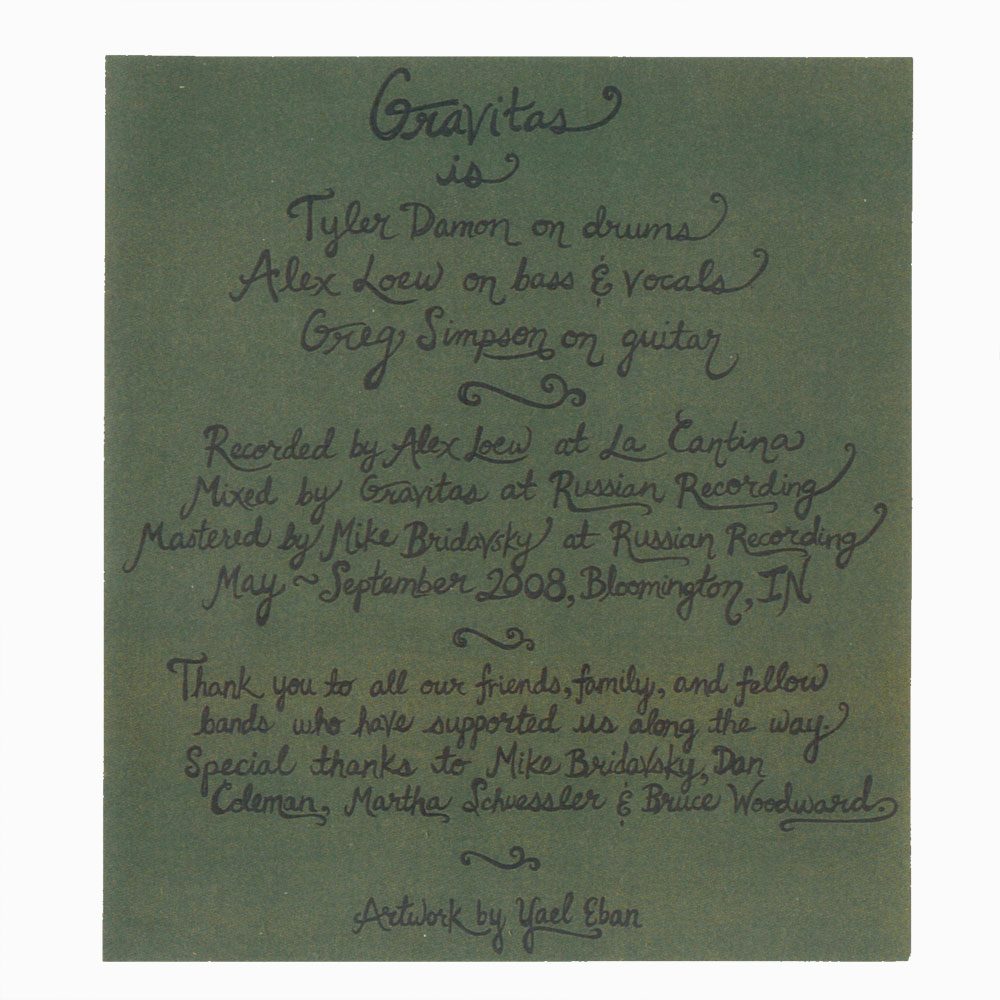 Gravitas
is
Tyler Damon on drums
Alex Loew on bass & vocals
Greg Simpson on guitar
Recorded by Alex Loew at La Cantina
Mixed by Gravitas at Russian Recording
Mastered by Mike Bridavsky at Russian Recording
May ~ September 2008, Bloomington, IN
Thank you to all our friends, family, and fellow
bands who have supported us along the way.
Special thanks to Mike Bridavsky, Dan
Coleman, Martha Schuessler & Bruce Woodward.
Artwork by Yael Eban